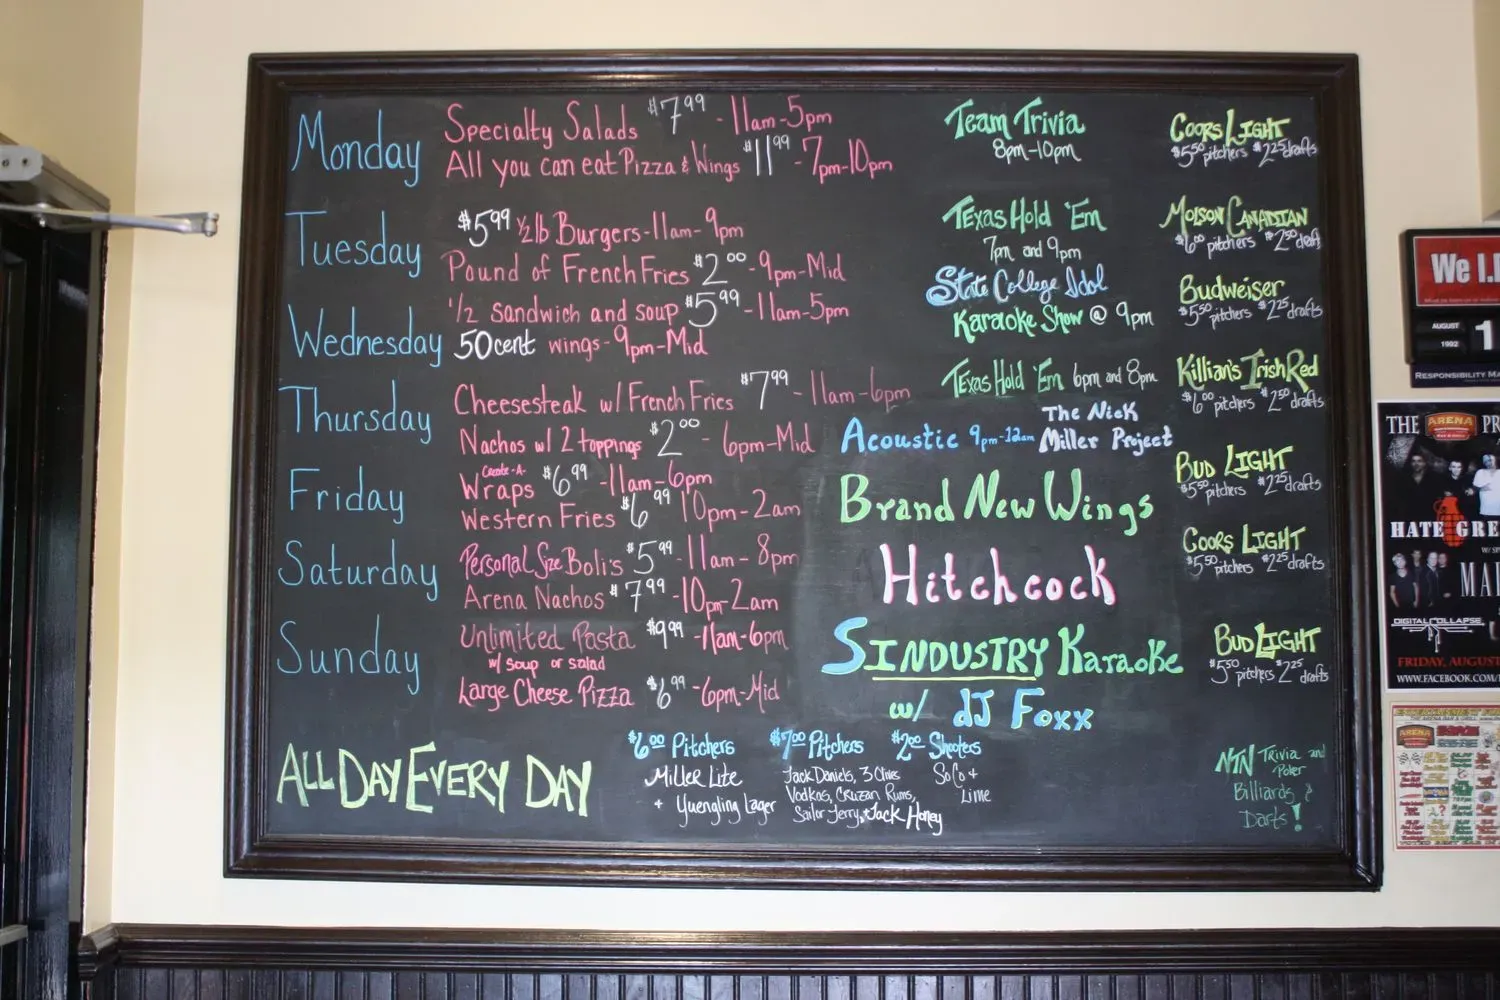 Monday
Specialty Salads $7.99 - 11am-5pm
All you can eat Pizza & Wings $11.99 - 7pm-10pm
Team Trivia
8pm-10pm
Coors Light
$5.50 pitchers $2.25 drafts
Tuesday
$5.99 1/2lb Burgers - 11am - 9pm
Pound of French Fries $2.00 - 9pm-Mid
Texas Hold 'Em
7pm and 9pm
Molson Canadian
$6.00 pitchers $2.50 draft
Wednesday
1/2 sandwich and soup $5.99 - 11am-5pm
50cent wings - 9pm-Mid
State College Idol
Karaoke Show @ 9pm
Budweiser
$5.50 pitchers $2.25 drafts
Thursday
Cheesesteak w/ French Fries $7.99 - 11am-6pm
Nachos w/ 2 toppings $2.00 - 6pm-Mid
Texas Hold 'Em 6pm and 8pm
Acoustic 9pm-12am
The Nick
Miller Project
Killian's Irish Red
$6.00 pitchers $2.50 drafts
Friday
Create-A-
Wraps $6.99 - 11am-6pm
Western Fries $6.99 10pm-2am
Brand New Wings
Bud Light
$5.50 pitchers $2.25 drafts
Saturday
Personal Size Boli's $5.99 - 11am - 8pm
Arena Nachos $7.99 - 10pm-2am
Hitchcock
Coors Light
$5.50 pitchers $2.25 drafts
Sunday
Unlimited Pasta $9.99 - 11am-6pm
w/ soup or salad
Large Cheese Pizza $6.99 - 6pm-Mid
Sindustry Karaoke
w/ dJ Foxx
Bud Light
$5.50 pitchers $2.25 drafts
All Day Every Day
$6.00 Pitchers
Miller Lite
+ Yuengling Lager
$7.00 Pitchers
Jack Daniels, 3 Olives
Vodkas, Cruzan Rums,
Sailor Jerry, + Jack Honey
$2.00 Shooters
SoCo +
Lime
NTN Trivia and
Poker
Billiards &
Darts!
We I.
AUGUST
1992
1
RESPONSIBILITY MA
THE ARENA PR
HATE GRE
W/
MA
DIGITAL COLLAPSE
FRIDAY, AUGUST
WWW.FACEBOOK.COM/
ARENA